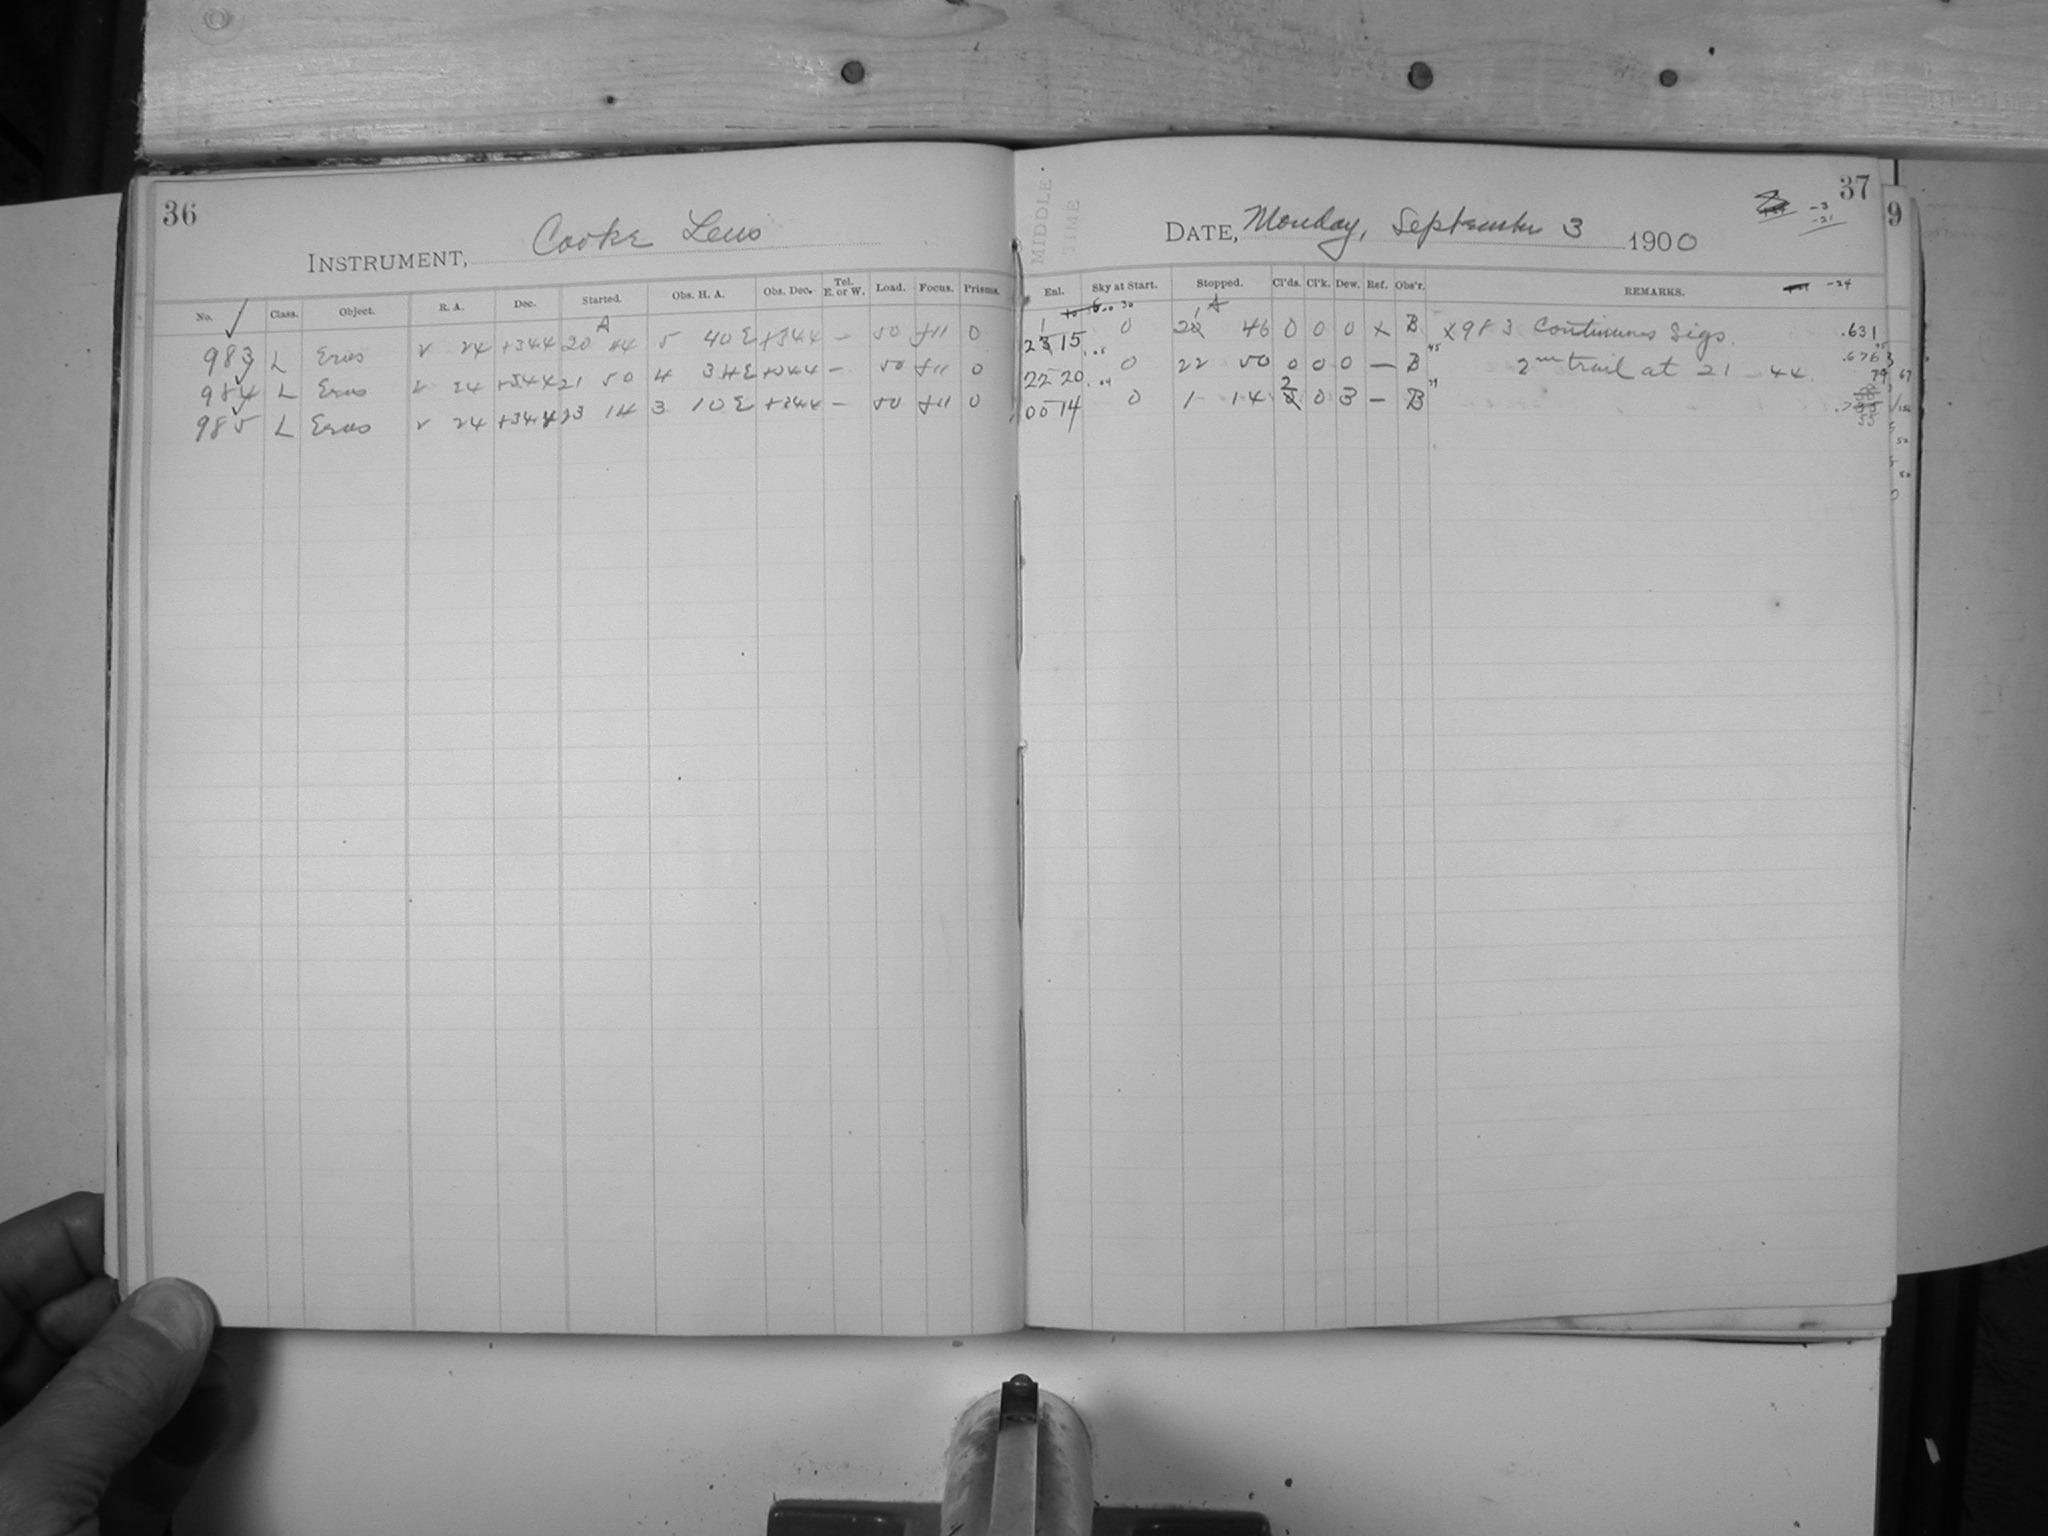 36
INSTRUMENT, Cooke Lens
No. Class. Object. R. A. Dec. Started. Obs. H. A. Obs. Dec. Tel. E. or W. Load. Focus. Prisms.
A
983 L Eros 2 24 +344 20 44 5 40 E +344 — 50 f11 0
984 L Eros 2 24 +344 21 50 4 34 E +344 — 50 f11 0
985 L Eros 2 24 +344 23 14 3 10 E +344 — 50 f11 0
MIDDLE
TIME
37
9
-3
-21
DATE, Monday, September 3 1900
Enl. Sky at Start. Stopped. Cl'ds. Cl'k. Dew. Ref. Obs'r. REMARKS. -24
15 0 46 0 0 0 x B x983 Continuous Sigs. .631
22 20 0 22 50 0 0 0 — B 2nd trail at 21 - 44
00 14 0 1 14 2 0 3 — B